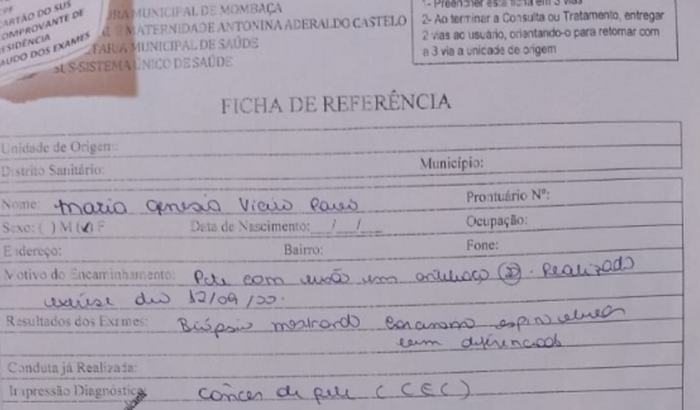 CARTÃO DO SUS
COMPROVANTE DE
RESIDÊNCIA
LAUDO DOS EXAMES
MUNICIPAL DE MOMBAÇA
MATERNIDADE ANTONINA ADERALDO CASTELO
MUNICIPAL DE SAÚDE
SUS-SISTEMA ÚNICO DE SAÚDE
1- Preencher esta ficha em 3 vias
2- Ao terminar a Consulta ou Tratamento, entregar
2 vias ao usuário, orientando-o para retornar com
a 3 via a unicade de origem
FICHA DE REFERÊNCIA
Unidade de Origem:
Distrito Sanitário: Município:
Nome: Maria Prontuário Nº:
Sexo: ( ) M (✓) F Data de Nascimento: __/__/__ Ocupação:
Endereço: Bairro: Fone:
Motivo do Encaminhamento: Pcte com lesão em antebraço (D). Realizado
exérese dia 12/09/20.
Resultados dos Exames: Biópsia mostrando carcinoma espinocelular
bem diferenciado
Conduta já Realizada:
Impressão Diagnóstica: câncer de pele (CEC)